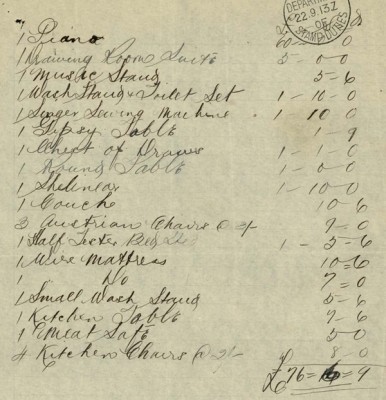 DEPARTM
22.9.13Z
OF
STAMP DUTIES
1 Piano 60 - 0
1 Drawing Room Suite 5 - 0 - 0
1 Music Stand 5 - 6
1 Wash Stand & Toilet Set 1 - 10 - 0
1 Singer Sewing Machine 1 10 0
1 Gipsy Table 1 - 9
1 Chest of Draws 1 - 1 - 0
1 Round Table 1 - 0 - 0
1 1 - 10 - 0
1 Couche 10 - 6
3 Austrian Chairs @ 3/- 9 - 0
1 Half Tester Bed 1 - 5 - 6
1 Wire Mattress 10 = 6
1 Do 7 = 0
1 Small Wash Stand 5 - 6
1 Kitchen Table 7 - 6
1 Meat Safe 5 - 0
4 Kitchen Chairs @ 2/- 8 - 0
£76 = = 9